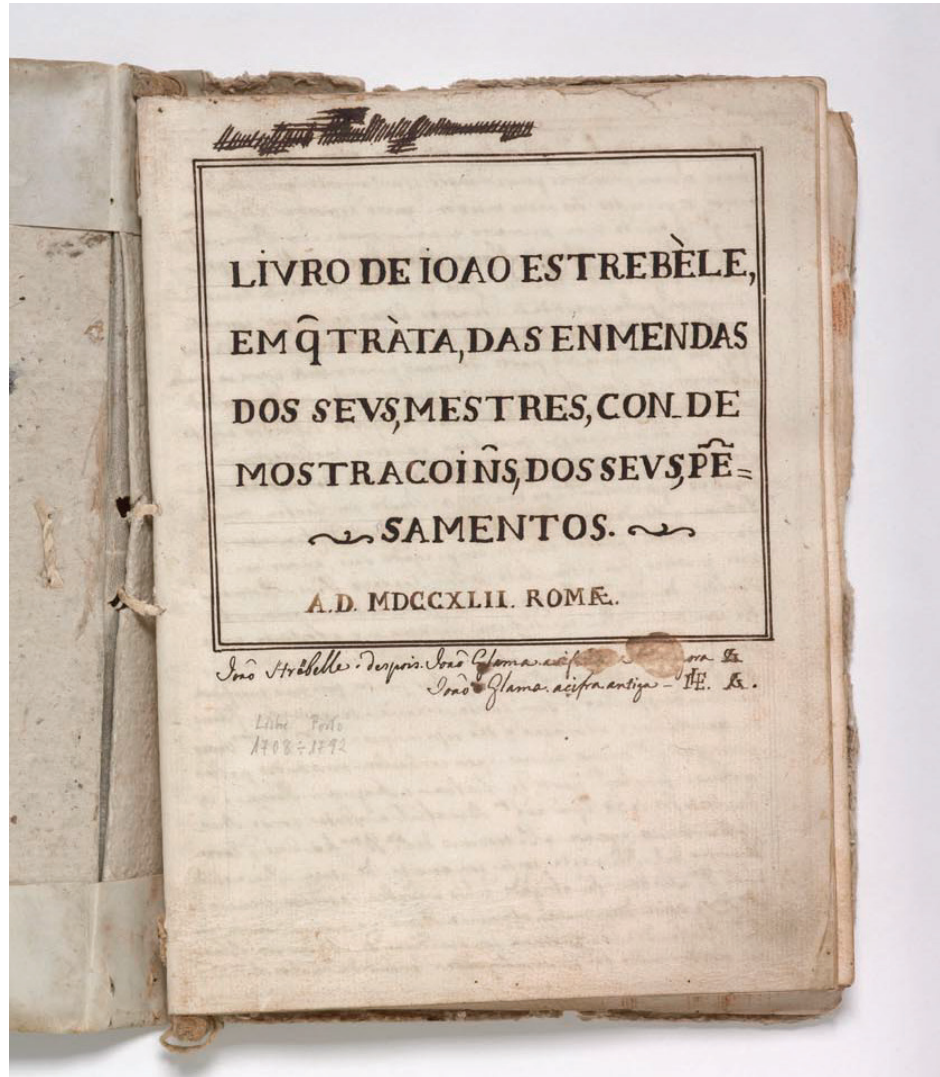 LIVRO DE IOAO ESTREBÈLE,
EM q̃ TRÀTA, DAS ENMENDAS
DOS SEVS, MESTRES, CON_DE
MOSTRACOIN̂S, DOS SEVS, PẼ=
SAMENTOS.
A.D. MDCCXLII. ROMÆ.
João Strèbelle. despois. João Glama. acifra
João Glama. acifra antiga –
Porto
1708÷1792